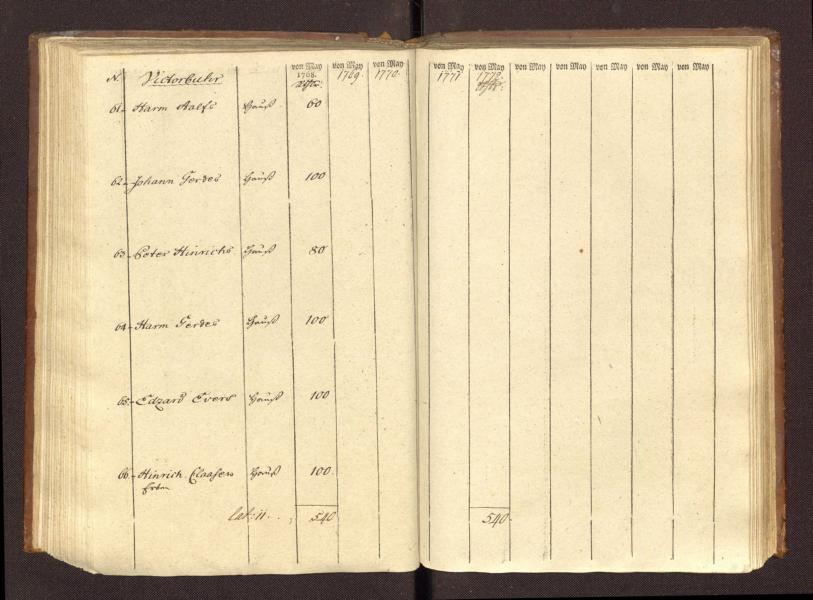 von May von May von May
N. Victorbuhr 1768. 1769. 1770.
61. Harm Aalfs Hauß 60
62. Johann Gerdes Hauß 100
63. Peter Hinrichs Hauß 80
64. Harm Gerdes Hauß 100
65. Edzard Evers Hauß 100
66. Hinrich Claaßens Hauß 100.
Erben
Lat: 540
von May von May von May von May von May von May von May
1771 1772.
540.